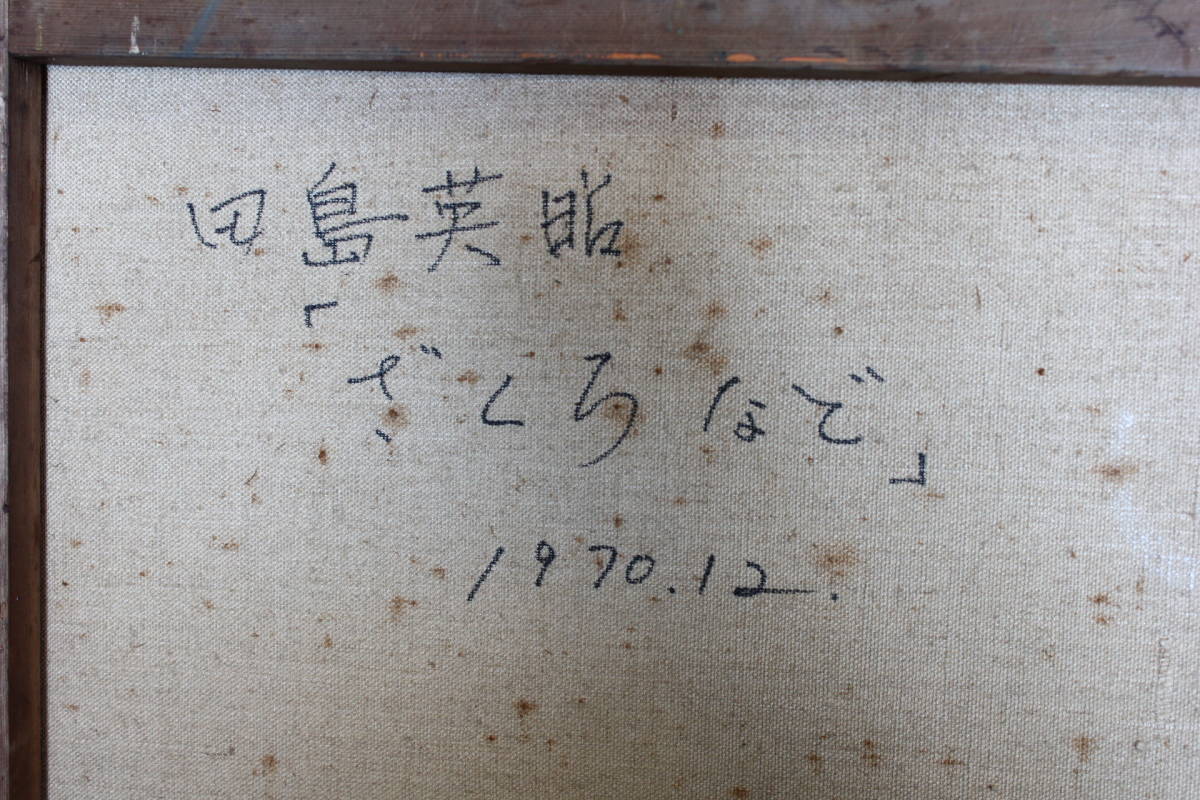 田島英昭
「ざくろなど」
1970.12.